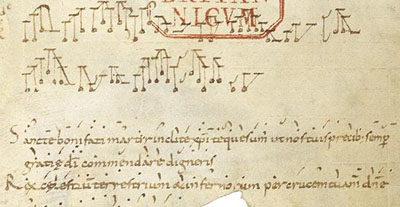 BRITAN
NICVM
Sancte bonifati martyr inclite xpi te quesum; ut nos tuis precib; semp
gratie di commendare digneris
Rex celestiū terrestrium & infernorum per crucem tuam dne